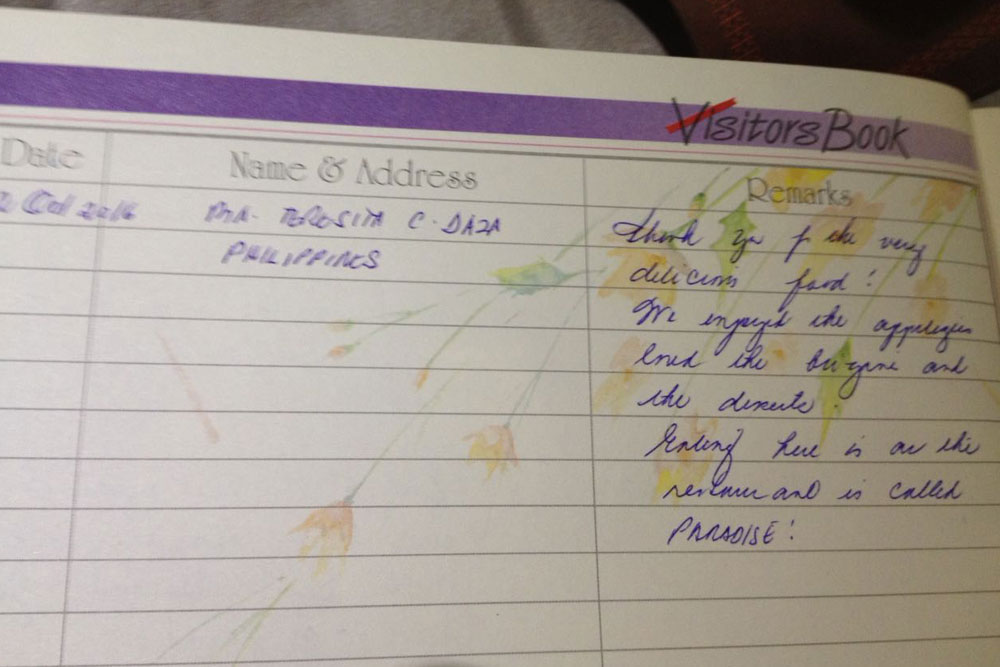 Visitors Book
Date
Name & Address
Remarks
Oct 2016
MA. TERESITA C. DAZA
PHILIPPINES
Thank you for the very
delicious food!
We enjoyed the
the and
the desserts.
Eating here is as the
and is called
PARADISE!